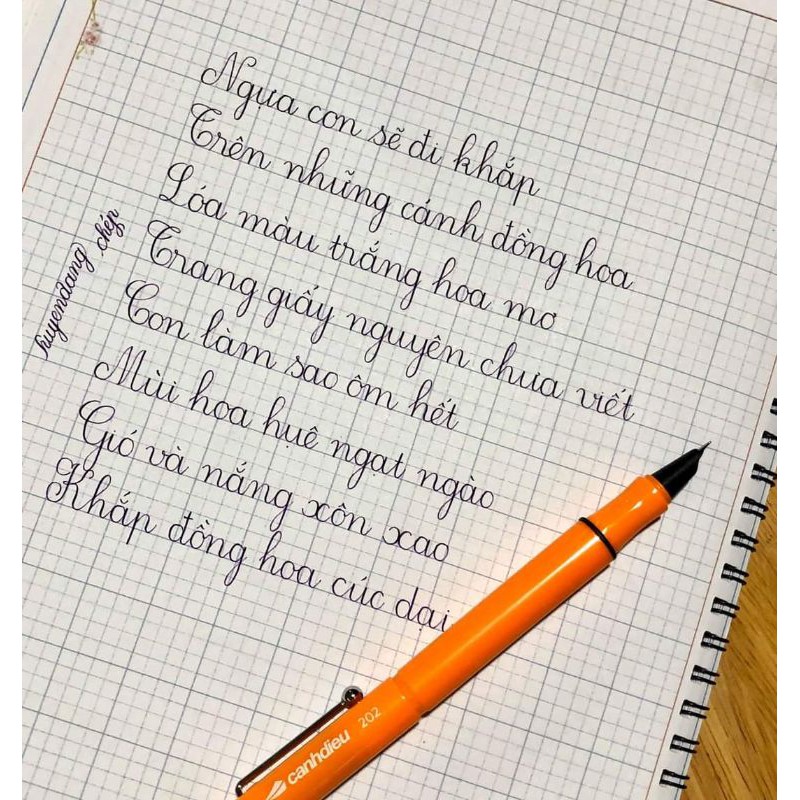 Ngựa con sẽ đi khắp
Trên những cánh đồng hoa
Lóa màu trắng hoa mơ
Trang giấy nguyên chưa viết
Con làm sao ôm hết
Mùi hoa huệ ngạt ngào
Gió và nắng xôn xao
Khắp đồng hoa cúc dại
huyendang chép
canhdieu 202